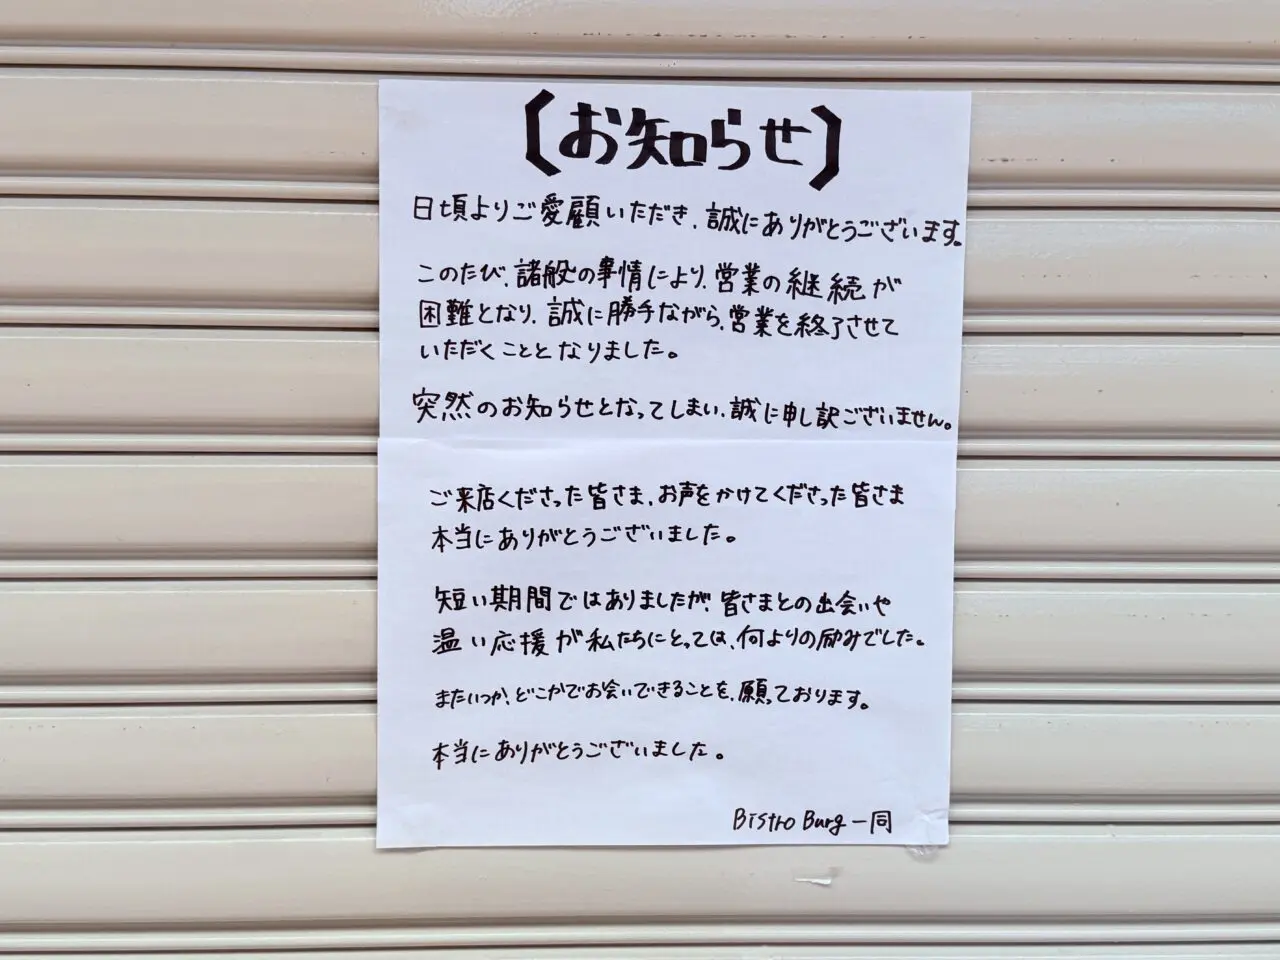 〔お知らせ〕
日頃よりご愛顧いただき、誠にありがとうございます。
このたび、諸般の事情により、営業の継続が
困難となり、誠に勝手ながら、営業を終了させて
いただくこととなりました。
突然のお知らせとなってしまい、誠に申し訳ございません。
ご来店くださった皆さま、お声をかけてくださった皆さま
本当にありがとうございました。
短い期間ではありましたが、皆さまとの出会いや
温い応援が私たちにとっては、何よりの励みでした。
またいつか、どこかでお会いできることを、願っております。
本当にありがとうございました。
Bistro Burg 一同